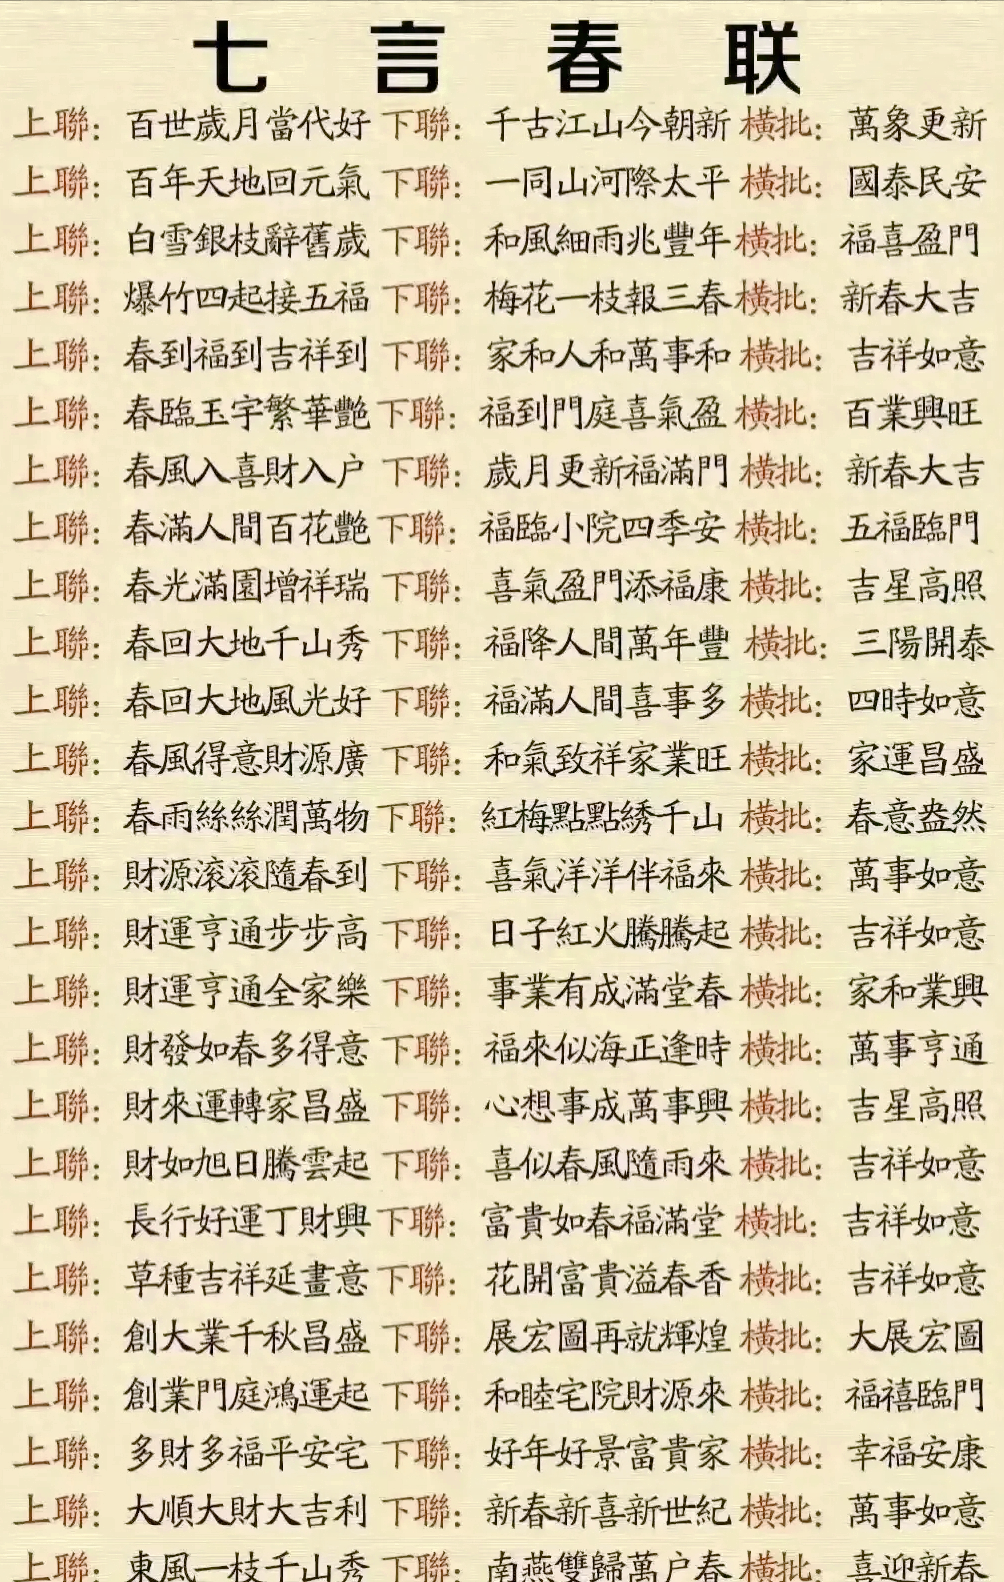 七言春联
上聯：百世歲月當代好 下聯：千古江山今朝新 橫批：萬象更新
上聯：百年天地回元氣 下聯：一同山河際太平 橫批：國泰民安
上聯：白雪銀枝辭舊歲 下聯：和風細雨兆豐年 橫批：福喜盈門
上聯：爆竹四起接五福 下聯：梅花一枝報三春 橫批：新春大吉
上聯：春到福到吉祥到 下聯：家和人和萬事和 橫批：吉祥如意
上聯：春臨玉宇繁華艷 下聯：福到門庭喜氣盈 橫批：百業興旺
上聯：春風入喜財入户 下聯：歲月更新福滿門 橫批：新春大吉
上聯：春滿人間百花艷 下聯：福臨小院四季安 橫批：五福臨門
上聯：春光滿園增祥瑞 下聯：喜氣盈門添福康 橫批：吉星高照
上聯：春回大地千山秀 下聯：福降人間萬年豐 橫批：三陽開泰
上聯：春回大地風光好 下聯：福滿人間喜事多 橫批：四時如意
上聯：春風得意財源廣 下聯：和氣致祥家業旺 橫批：家運昌盛
上聯：春雨絲絲潤萬物 下聯：紅梅點點綉千山 橫批：春意盎然
上聯：財源滚滚隨春到 下聯：喜氣洋洋伴福來 橫批：萬事如意
上聯：財運亨通步步高 下聯：日子紅火騰騰起 橫批：吉祥如意
上聯：財運亨通全家樂 下聯：事業有成滿堂春 橫批：家和業興
上聯：財發如春多得意 下聯：福來似海正逢時 橫批：萬事亨通
上聯：財來運轉家昌盛 下聯：心想事成萬事興 橫批：吉星高照
上聯：財如旭日騰雲起 下聯：喜似春風隨雨來 橫批：吉祥如意
上聯：長行好運丁財興 下聯：富貴如春福滿堂 橫批：吉祥如意
上聯：草種吉祥延畫意 下聯：花開富貴溢春香 橫批：吉祥如意
上聯：創大業千秋昌盛 下聯：展宏圖再就輝煌 橫批：大展宏圖
上聯：創業門庭鴻運起 下聯：和睦宅院財源來 橫批：福禧臨門
上聯：多財多福平安宅 下聯：好年好景富貴家 橫批：幸福安康
上聯：大順大財大吉利 下聯：新春新喜新世紀 橫批：萬事如意
上聯：東風一枝千山秀 下聯：南燕雙歸萬户春 橫批：喜迎新春